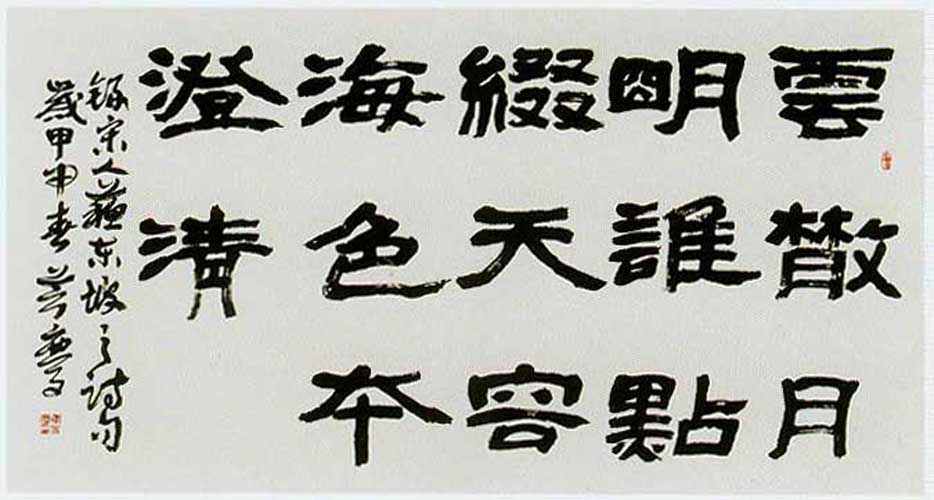 雲散月
明誰點
綴天容
海色本
澄清
錄宋人蘇東坡之詩句
歲甲申春